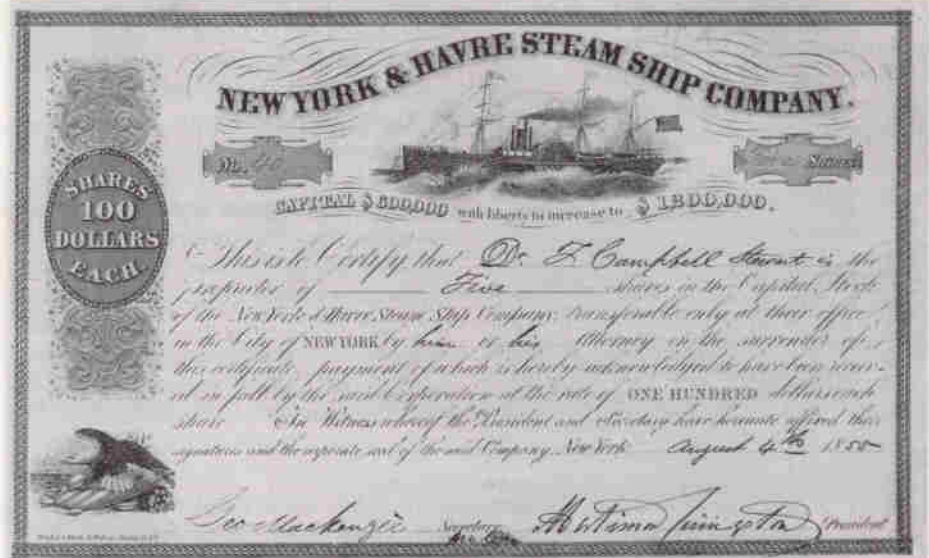 NEW YORK & HAVRE STEAM SHIP COMPANY.
No.
Shares
SHARES
100
DOLLARS
EACH.
CAPITAL $600,000 with liberty to increase to $1800,000.
This is to Certify that Dr. F. Campbell Stewart is the
proprietor of Five shares in the Capital Stock
of the New York & Havre Steam Ship Company, transferable only at their office
in the City of NEW YORK by him or his Attorney on the surrender of
this certificate, payment of which is hereby acknowledged to have been receiv-
ed in full by the said Corporation at the rate of ONE HUNDRED dollars each
share In Witness whereof the President and Secretary have hereunto affixed their
signatures and the corporate seal of the said Company New York August 4th 1855
Geo Mackenzie Secretary Mortimer Livingston President